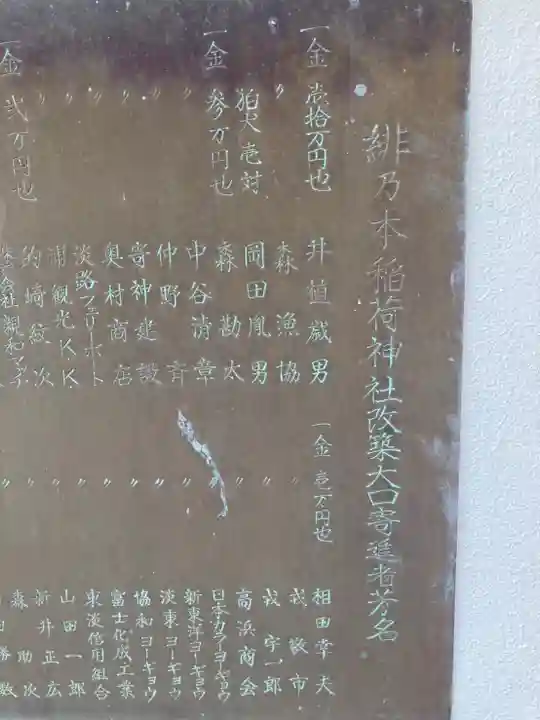 緋乃木稲荷神社改築大口寄進者芳名
一金 壱拾万円也 升植歳男
〃 森漁協
狛犬壱対 岡田胤男
一金 参万円也 森勘太
〃 中谷清章
〃 仲野斉
〃 寄神建設
〃 奥村商店
〃 淡路フェリーボート
〃 浦観光KK
〃 的崎紋次
一金 弐万円也
一金 壱万円也 相田幸夫
〃 戎敬市
〃 戎宇一郎
〃 高浜商会
〃 日本カラーヨーギョウ
〃 新東洋ヨーギョウ
〃 淡東ヨーギョウ
〃 協和ヨーギョウ
〃 富士化成工業
〃 東淡信用組合
〃 山田一郎
〃 新井正広
〃 森助次